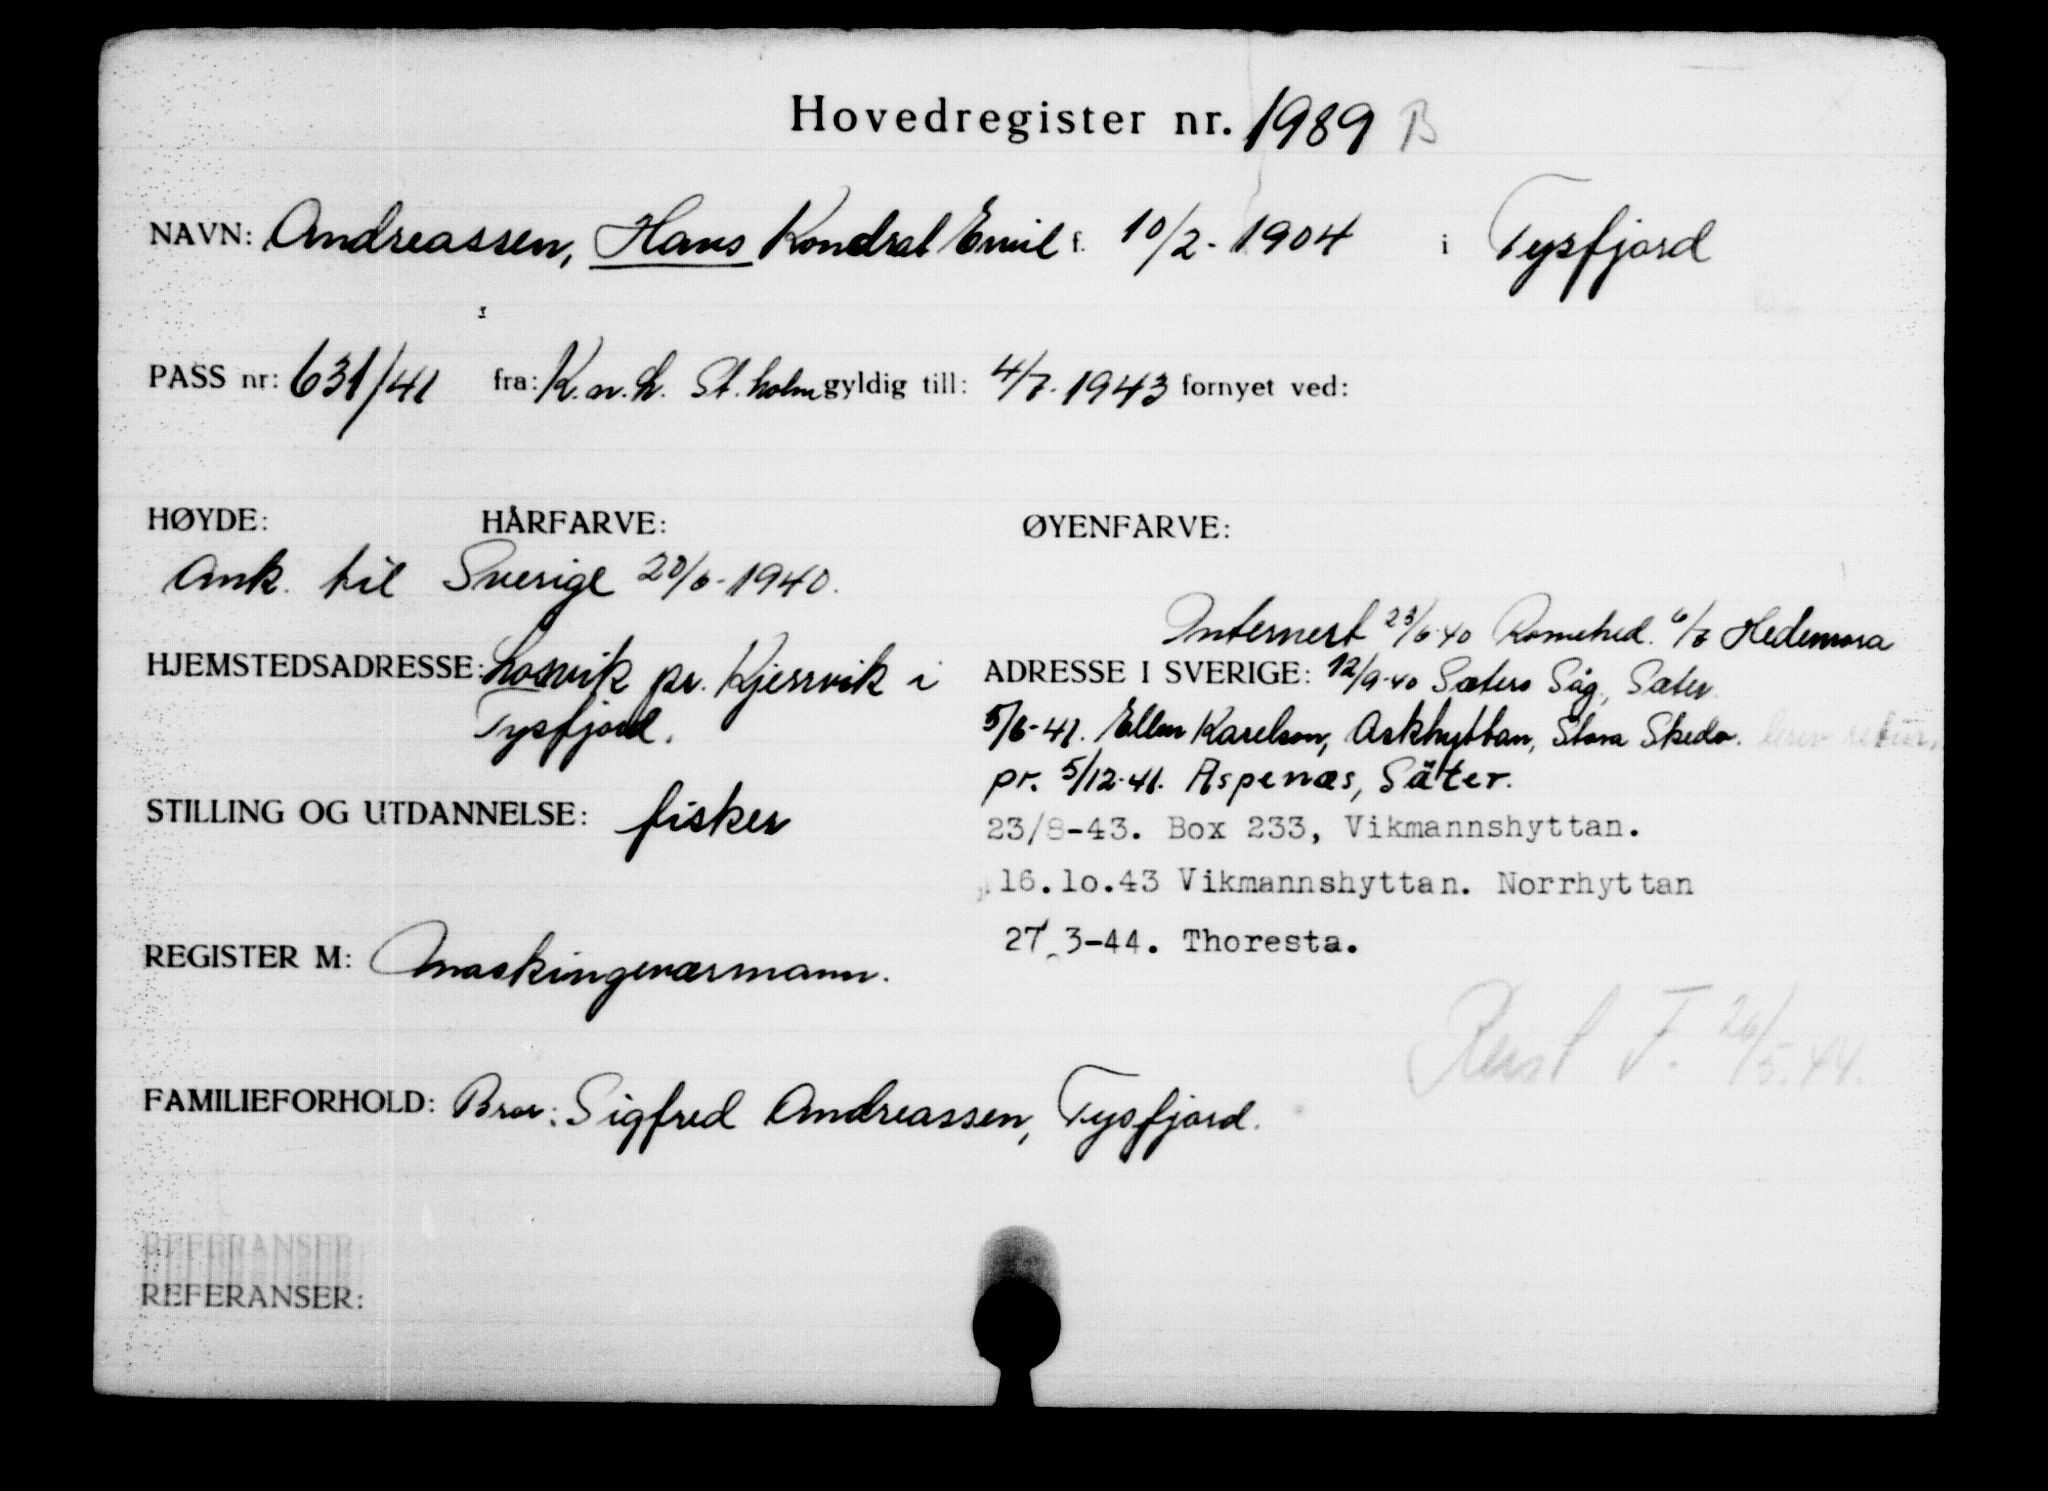 Hovedregister nr. 1989 B
NAVN: Andreassen, Hans Kondrat Emil f. 10/2-1904 i Tysfjord
PASS nr: 631/41 fra: K.n.L. St.holm gyldig till: 4/7.1943 fornyet ved:
HØYDE: HÅRFARVE: ØYENFARVE:
Ank. til Sverige 20/6-1940.
Internert 23/6-40 Romehed. 6/7 Hedemora
HJEMSTEDSADRESSE: pr. Kjersvik i
Tysfjord.
ADRESSE I SVERIGE: 12/9-40 Sæters Såg, Sæter
5/6-41. Ellen Karelson, Askhyttan, Stora Skedv. brev retur,
pr. 5/12-41. Aspenæs, Säter.
STILLING OG UTDANNELSE: fisker
23/8-43. Box 233, Vikmannshyttan.
16.1o.43 Vikmannshyttan. Norrhyttan
27.3-44. Thoresta.
REGISTER M: Maskingeværmann.
T. 26/5.44.
FAMILIEFORHOLD: Bror: Sigfred Andreassen, Tysfjord.
REFERANSER:
REFERANSER: